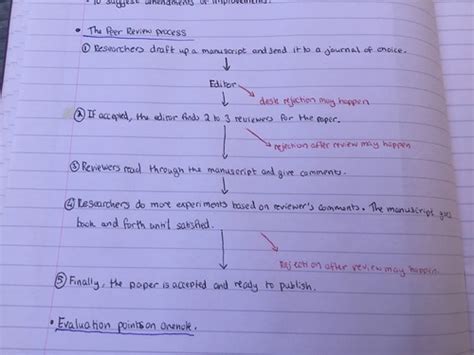 • To suggest amendments or improvements.
• The Peer Review process
① Researchers draft up a manuscript and send it to a journal of choice.
Editor
desk rejection may happen
② If accepted, the editor finds 2 to 3 reviewers for the paper.
rejection after review may happen
③ Reviewers read through the manuscript and give comments.
④ Researchers do more experiments based on reviewer's comments. The manuscript goes
back and forth until satisfied.
Rejection after review may happen
⑤ Finally, the paper is accepted and ready to publish.
• Evaluation points on onenote.